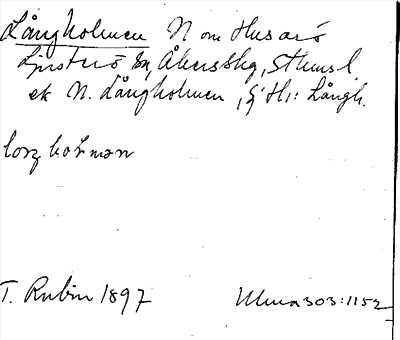 Långholmen N om Husarö
Ljusterö sn, Åkers skg, Sthms l.
ek N. Långholmen, G H: Långh.
T. Rubin 1897
Ulma 303:1152